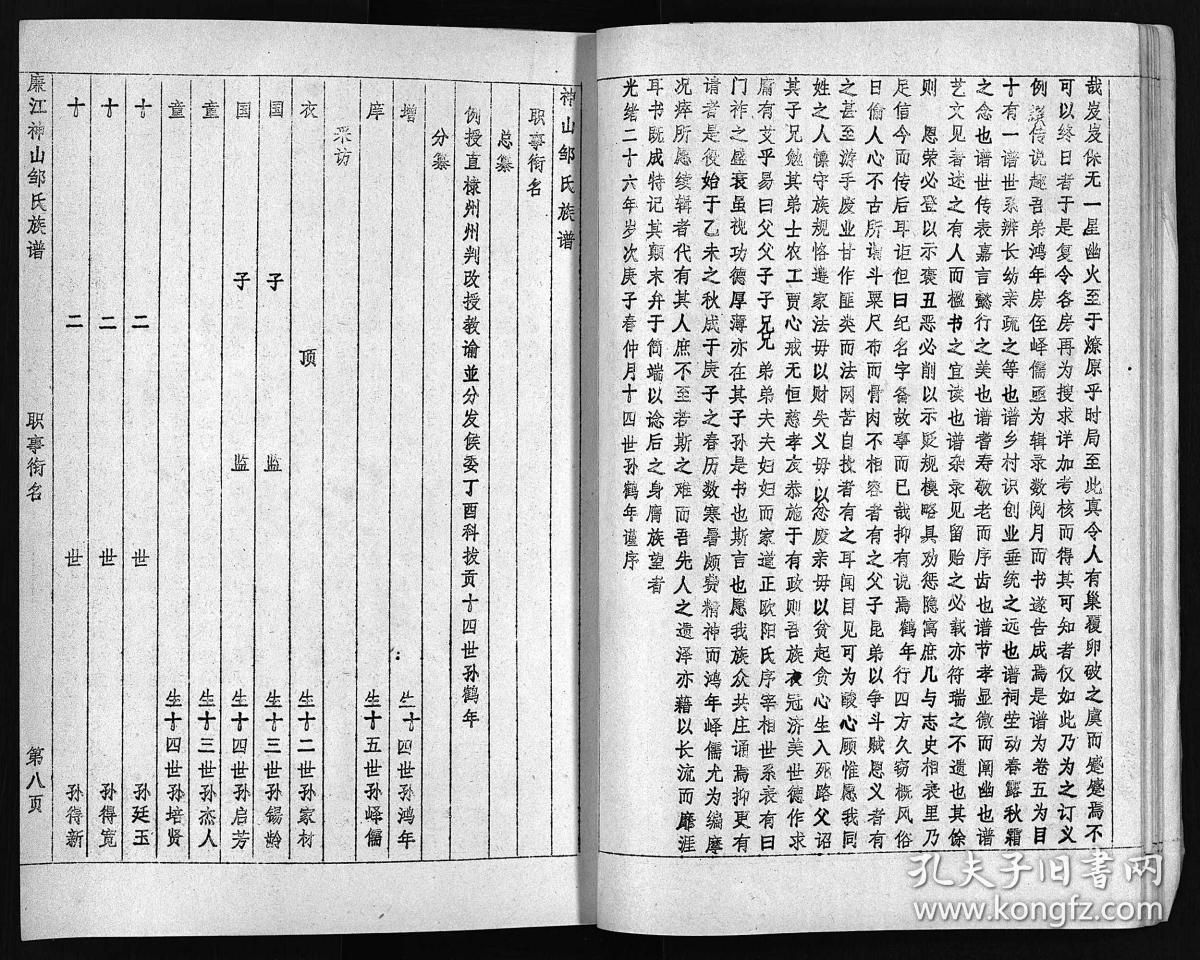 哉岌岌保无一星幽火至于燎原乎时局至此真令人有巢覆卵破之虞而蹙蹙焉不
可以终日者于是复令各房再为搜求详加考核而得其可知者仅如此乃为之订义
例譔传说趣吾弟鸿年房侄峄儒亟为辑录数阅月而书遂告成焉是谱为卷五为目
十有一谱世系辨长幼亲疏之等也谱乡村识创业垂统之远也谱祠茔动春露秋霜
之念也谱世传表嘉言懿行之美也谱耆寿敬老而序齿也谱节孝显微而阐幽也谱
艺文见著述之有人而楹书之宜读也谱杂录见留贻之必载亦符瑞之不遗也其馀
则 恩荣必登以示褒丑恶必削以示贬规模略具劝惩隐寓庶几与志史相表里乃
足信今而传后耳讵但曰纪名字备故事而已哉抑有说焉鹤年行四方久窃概风俗
日偷人心不古所谓斗粟尺布而骨肉不相容者有之父子昆弟以争斗贼恩义者有
之甚至游手废业甘作匪类而法网苦自投者有之耳闻目见可为酸心顾惟愿我同
姓之人懔守族规恪遵家法毋以财失义毋以忿废亲毋以贫起贪心生入死路父诏
其子兄勉其弟士农工贾心戒无恒慈孝友恭施于有政则吾族衣冠济美世德作求
庸有艾乎易曰父父子子兄兄弟弟夫夫妇妇而家道正欧阳氏序宰相世系表有曰
门祚之盛衰虽视功德厚薄亦在其子孙是书也斯言也愿我族众共庄诵焉抑更有
请者是役始于乙未之秋成于庚子之春历数寒暑颇费精神而鸿年峄儒尤为编摩
况瘁所愿续辑者代有其人庶不至若斯之难而吾先人之遗泽亦藉以长流而靡涯
耳书既成特记其颠末弁于简端以谂后之身膺族望者
光绪二十六年岁次庚子春仲月十四世孙鹤年谨序
神山邹氏族谱
职事衔名
总纂
例授直棣州州判改授教谕並分发侯委丁酉科拔贡十四世孙鹤年
分纂
增 生十四世孙鸿年
庠 生十五世孙峄儒
采访
衣 顶 生十二世孙家材
国 子 监 生十三世孙锡龄
国 子 监 生十四世孙启芳
童 生十三世孙杰人
童 生十四世孙培贤
十 二 世 孙廷玉
十 二 世 孙得宽
十 二 世 孙得新
廉江神山邹氏族谱 职事衔名 第八页
孔夫子旧书网
www.kongfz.com